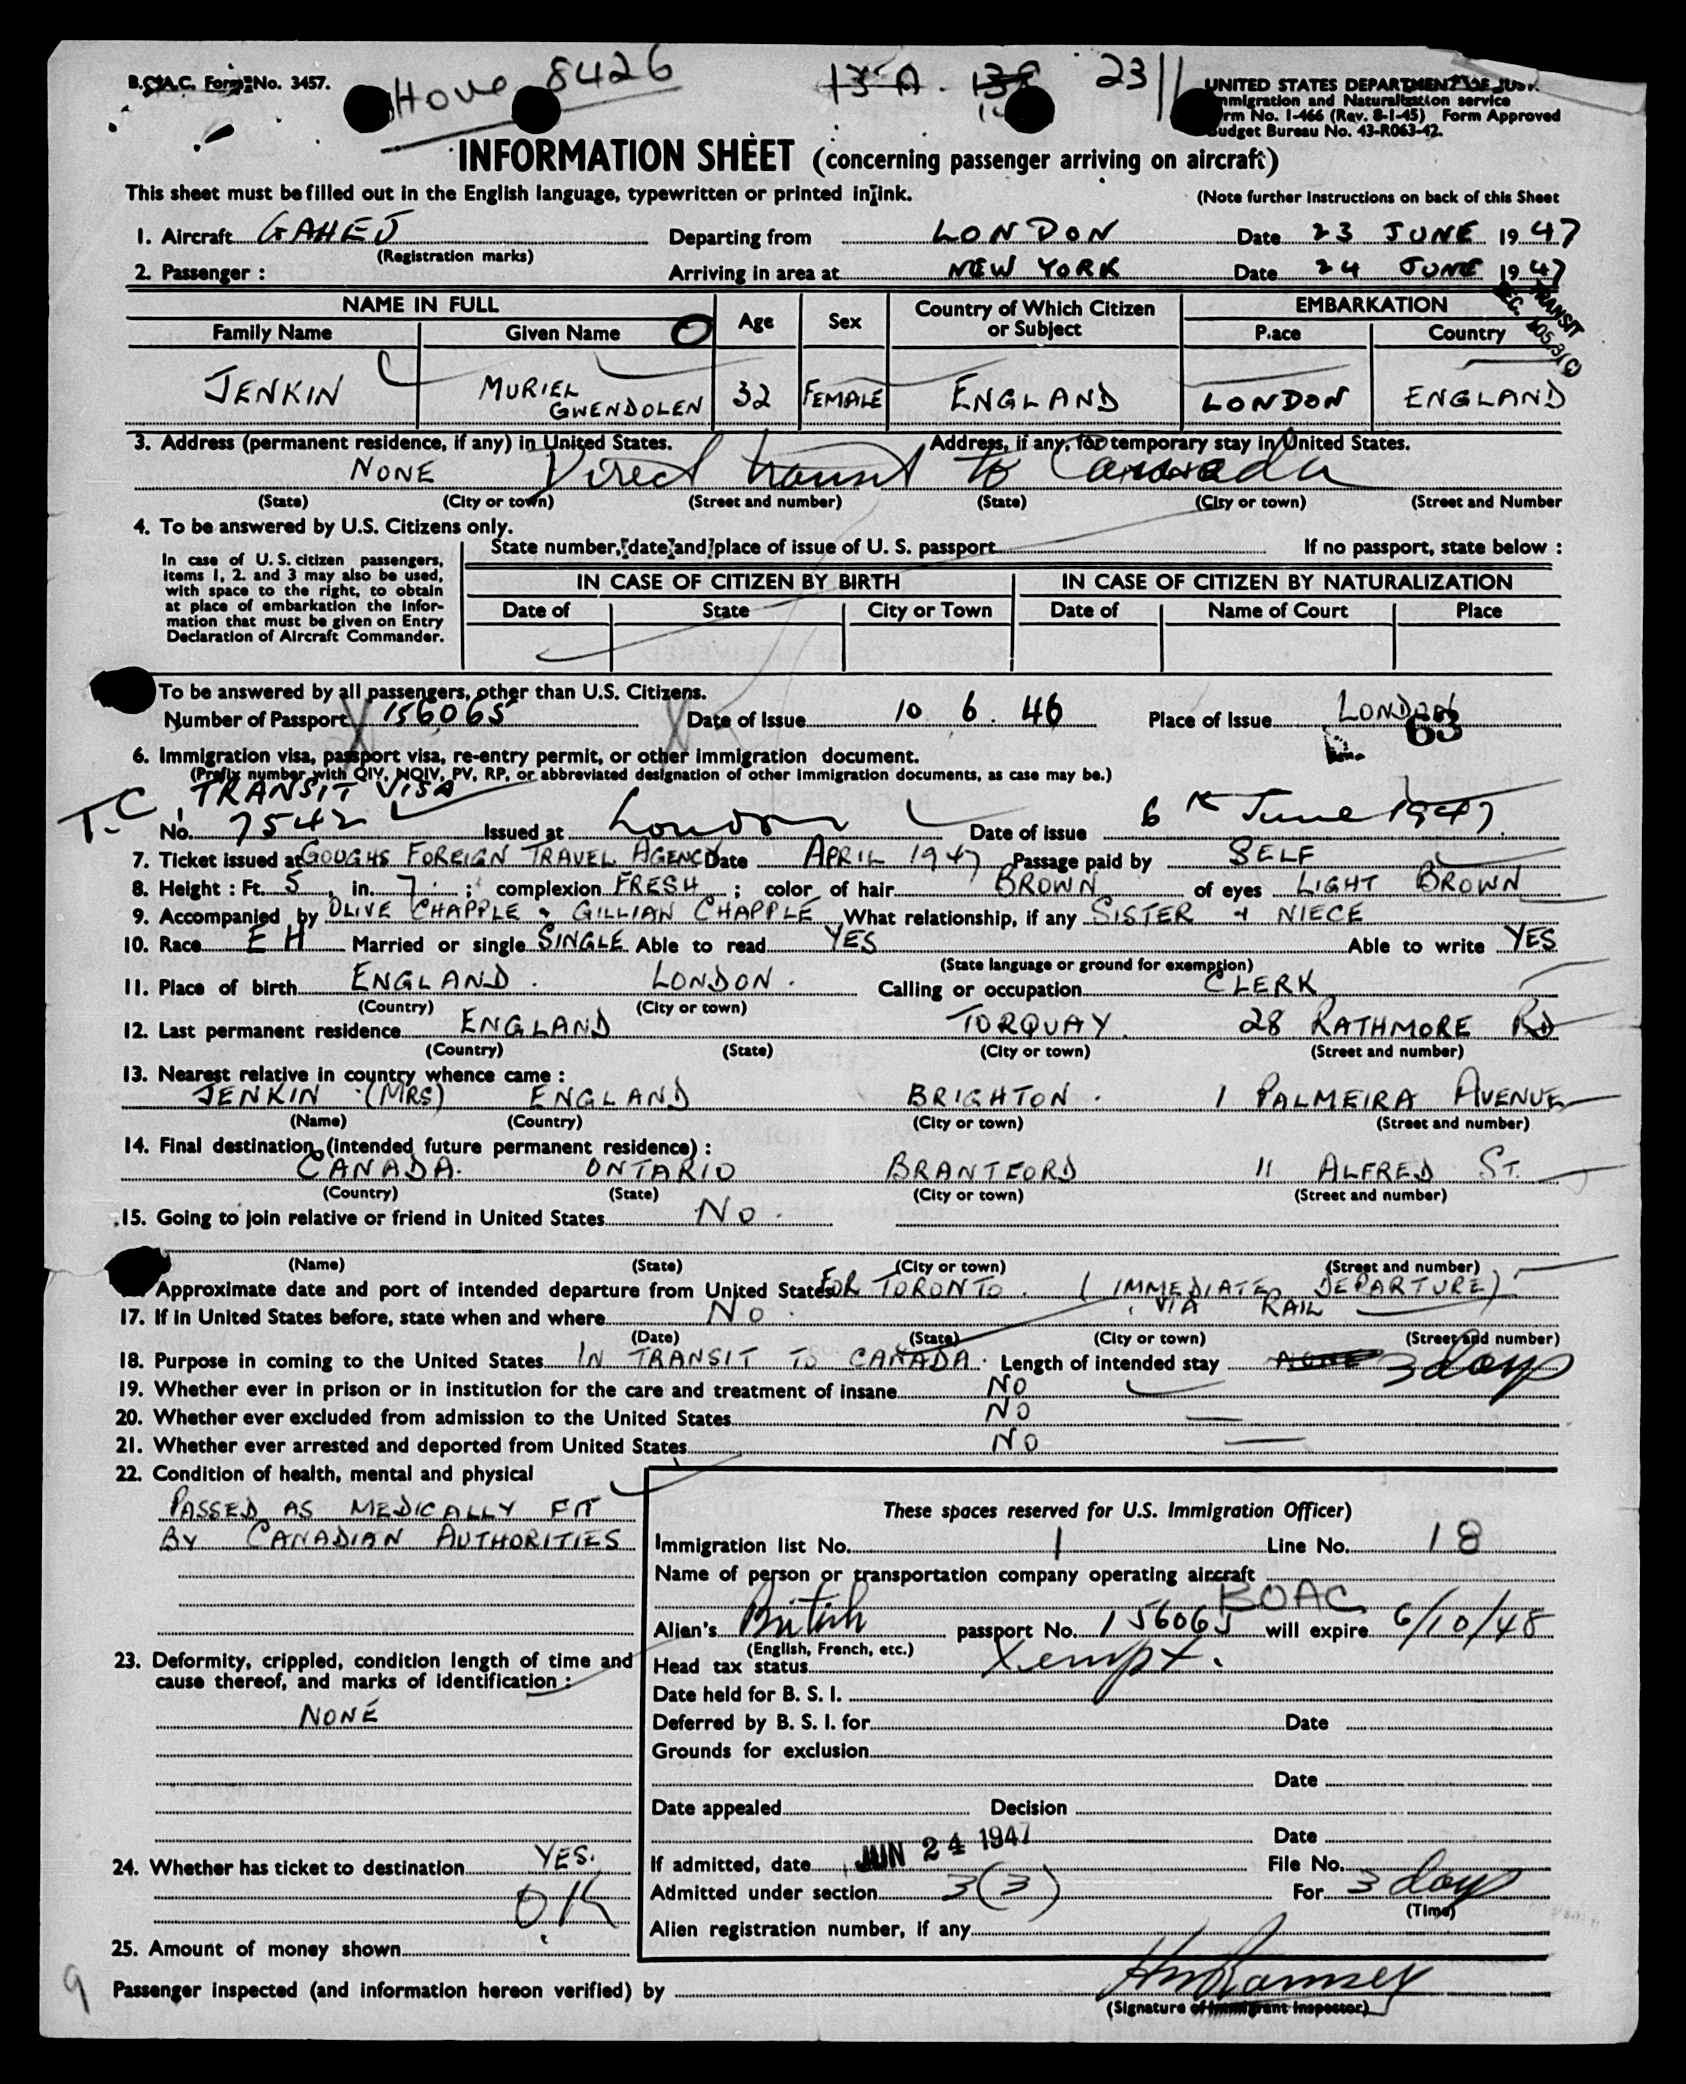 B.O.A.C. Form No. 3457.
Hove 8426
13 A. 23
UNITED STATES DEPARTMENT OF JUST.
Immigration and Naturalization service
Form No. I-466 (Rev. 8-1-45) Form Approved
Budget Bureau No. 43-R063-42.
INFORMATION SHEET (concerning passenger arriving on aircraft)
This sheet must be filled out in the English language, typewritten or printed in ink.
(Note further Instructions on back of this Sheet
1. Aircraft GAHEJ Departing from LONDON Date 23 JUNE 1947
(Registration marks)
2. Passenger : Arriving in area at NEW YORK Date 24 JUNE 1947
TRANSIT
NAME IN FULL Age Sex Country of Which Citizen or Subject EMBARKATION
Family Name Given Name Place Country
JENKIN MURIEL GWENDOLEN 32 FEMALE ENGLAND LONDON ENGLAND
3. Address (permanent residence, if any) in United States. Address, if any, for temporary stay in United States.
NONE Direct transit to Canada
(State) (City or town) (Street and number) (State) (City or town) (Street and Number
4. To be answered by U.S. Citizens only.
State number, date and place of issue of U. S. passport If no passport, state below :
In case of U. S. citizen passengers,
items 1, 2. and 3 may also be used,
with space to the right, to obtain
at place of embarkation the infor-
mation that must be given on Entry
Declaration of Aircraft Commander.
IN CASE OF CITIZEN BY BIRTH IN CASE OF CITIZEN BY NATURALIZATION
Date of State City or Town Date of Name of Court Place
To be answered by all passengers, other than U.S. Citizens.
Number of Passport 156065 Date of Issue 10 6. 46 Place of Issue LONDON
63
6. Immigration visa, passport visa, re-entry permit, or other immigration document.
(Prefix number with QIV, NQIV, PV, RP, or abbreviated designation of other immigration documents, as case may be.)
T.C TRANSIT VISA
No. 7542 Issued at London Date of issue 6th June 1947.
7. Ticket issued at GOUGHS FOREIGN TRAVEL AGENCY Date APRIL 1947 Passage paid by SELF
8. Height : Ft. 5 , in. 7. ; complexion FRESH ; color of hair BROWN of eyes LIGHT BROWN
9. Accompanied by OLIVE CHAPPLE & GILLIAN CHAPPLE What relationship, if any SISTER & NIECE
10. Race E H Married or single SINGLE Able to read YES Able to write YES
(State language or ground for exemption)
11. Place of birth ENGLAND. LONDON. Calling or occupation CLERK
(Country) (City or town)
12. Last permanent residence ENGLAND TORQUAY. 28 RATHMORE RD
(Country) (State) (City or town) (Street and number)
13. Nearest relative in country whence came :
JENKIN (MRS) ENGLAND BRIGHTON. 1 PALMEIRA AVENUE
(Name) (Country) (City or town) (Street and number)
14. Final destination (intended future permanent residence) :
CANADA. ONTARIO BRANTFORD 11 ALFRED ST.
(Country) (State) (City or town) (Street and number)
15. Going to join relative or friend in United States NO.
(Name) (State) (City or town) (Street and number)
Approximate date and port of intended departure from United States FOR TORONTO. (IMMEDIATE DEPARTURE)
VIA RAIL
17. If in United States before, state when and where NO.
(Date) (State) (City or town) (Street and number)
18. Purpose in coming to the United States IN TRANSIT TO CANADA. Length of intended stay NONE 3 days
19. Whether ever in prison or in institution for the care and treatment of insane NO
20. Whether ever excluded from admission to the United States NO
21. Whether ever arrested and deported from United States NO
22. Condition of health, mental and physical
PASSED AS MEDICALLY FIT
BY CANADIAN AUTHORITIES
23. Deformity, crippled, condition length of time and
cause thereof, and marks of identification :
NONE
24. Whether has ticket to destination YES.
OK
25. Amount of money shown
These spaces reserved for U.S. Immigration Officer)
Immigration list No. 1 Line No. 18
Name of person or transportation company operating aircraft
BOAC
Alien's British passport No. 156065 will expire 6/10/48
(English, French, etc.)
Head tax status Xempt.
Date held for B. S. I.
Deferred by B. S. I. for Date
Grounds for exclusion
Date
Date appealed Decision
Date
If admitted, date JUN 24 1947 File No.
Admitted under section 3(3) For 3 days
(Time)
Alien registration number, if any
9
Passenger inspected (and information hereon verified) by
(Signature of Immigrant Inspector)